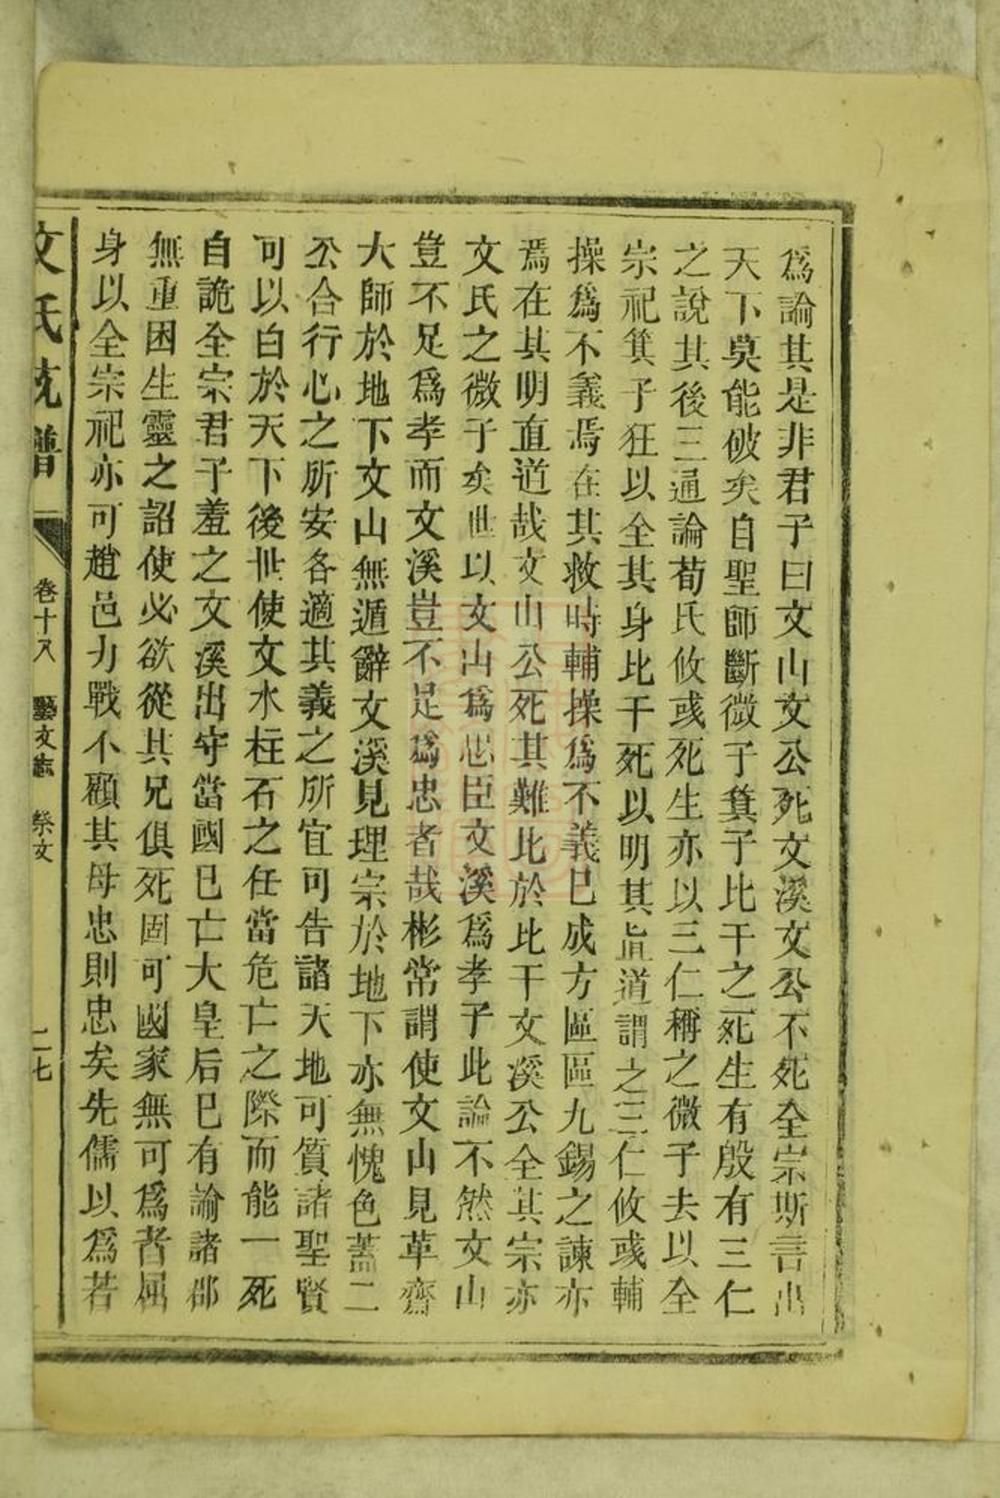 為論其是非君子曰文山文公死文溪文公不死全宗斯言出
天下莫能破矣自聖師斷微子箕子比干之死生有殷有三仁
之說其後三通論荀氏攸彧死生亦以三仁稱之微子去以全
宗祀箕子狂以全其身比干死以明其眞道謂之三仁攸彧輔
操為不義焉在其救時輔操為不義已成方區區九錫之諫亦
焉在其明直道哉文山公死其難比於比干文溪公全其宗亦
文氏之微子矣世以文山為忠臣文溪為孝子此論不然文山
豈不足為孝而文溪豈不足為忠者哉彬常謂使文山見革齋
大師於地下文山無遁辭文溪見理宗於地下亦無愧色蓋二
公合行心之所安各適其義之所宜可告諸天地可質諸聖賢
可以白於天下後世使文水柱石之任當危亡之際而能一死
自詭全宗君子羞之文溪出守當國已亡大皇后已有諭諸郡
無重困生靈之詔使必欲從其兄俱死固可國家無可為者屈
身以全宗祀亦可趙邑力戰不顧其母忠則忠矣先儒以為若
文氏 譜 卷十八 藝文志 祭文 二七